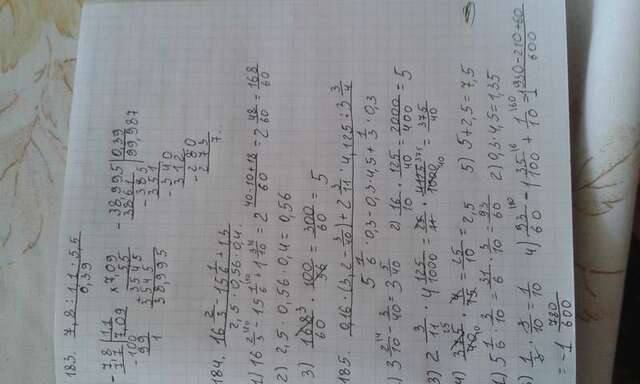 183. 7,8 : 1,1 · 5,5 / 0,39
- 7,8 | 1,1
7,7 | 7,09
- 100
99
1
× 7,09
55
+ 3545
3545
38,995
- 38,995 | 0,39
3861 | 99,987
- 385
351
- 340
312
- 280
273
7...
184. (16 2/3 - 15 1/6 + 1,3) / (2,5 · 0,56 · 0,4)
1) 16 2/3 - 15 1/6 + 1 3/10 = 2 (40-10+18)/60 = 2 48/60 = 168/60
2) 2,5 · 0,56 · 0,4 = 0,56
3) 168/60 · 100/56 = 300/60 = 5
185. (0,16 · (3,2 - 3/40) + 2 3/11 · 4,125 : 3 3/4) / (5 1/6 · 0,3 - 0,3 · 4,5 + 1/3 · 0,3)
1) 3 2/10 - 3/40 = 3 5/40 2) 16/10 · 125/40 = 2000/400 = 5
3) 2 3/11 · 4 125/1000 = 25/11 · 4125/1000 = 375/40
4) 375/40 · 4/15 = 25/10 = 2,5 5) 5 + 2,5 = 7,5
1) 5 1/6 · 3/10 = 31/6 · 3/10 = 93/60 2) 0,3 · 4,5 = 1,35
3) 1/3 · 3/10 = 1/10 4) 93/60 - 1 35/100 + 1/10 = 1 (930-210+60)/600
= -1 780/600